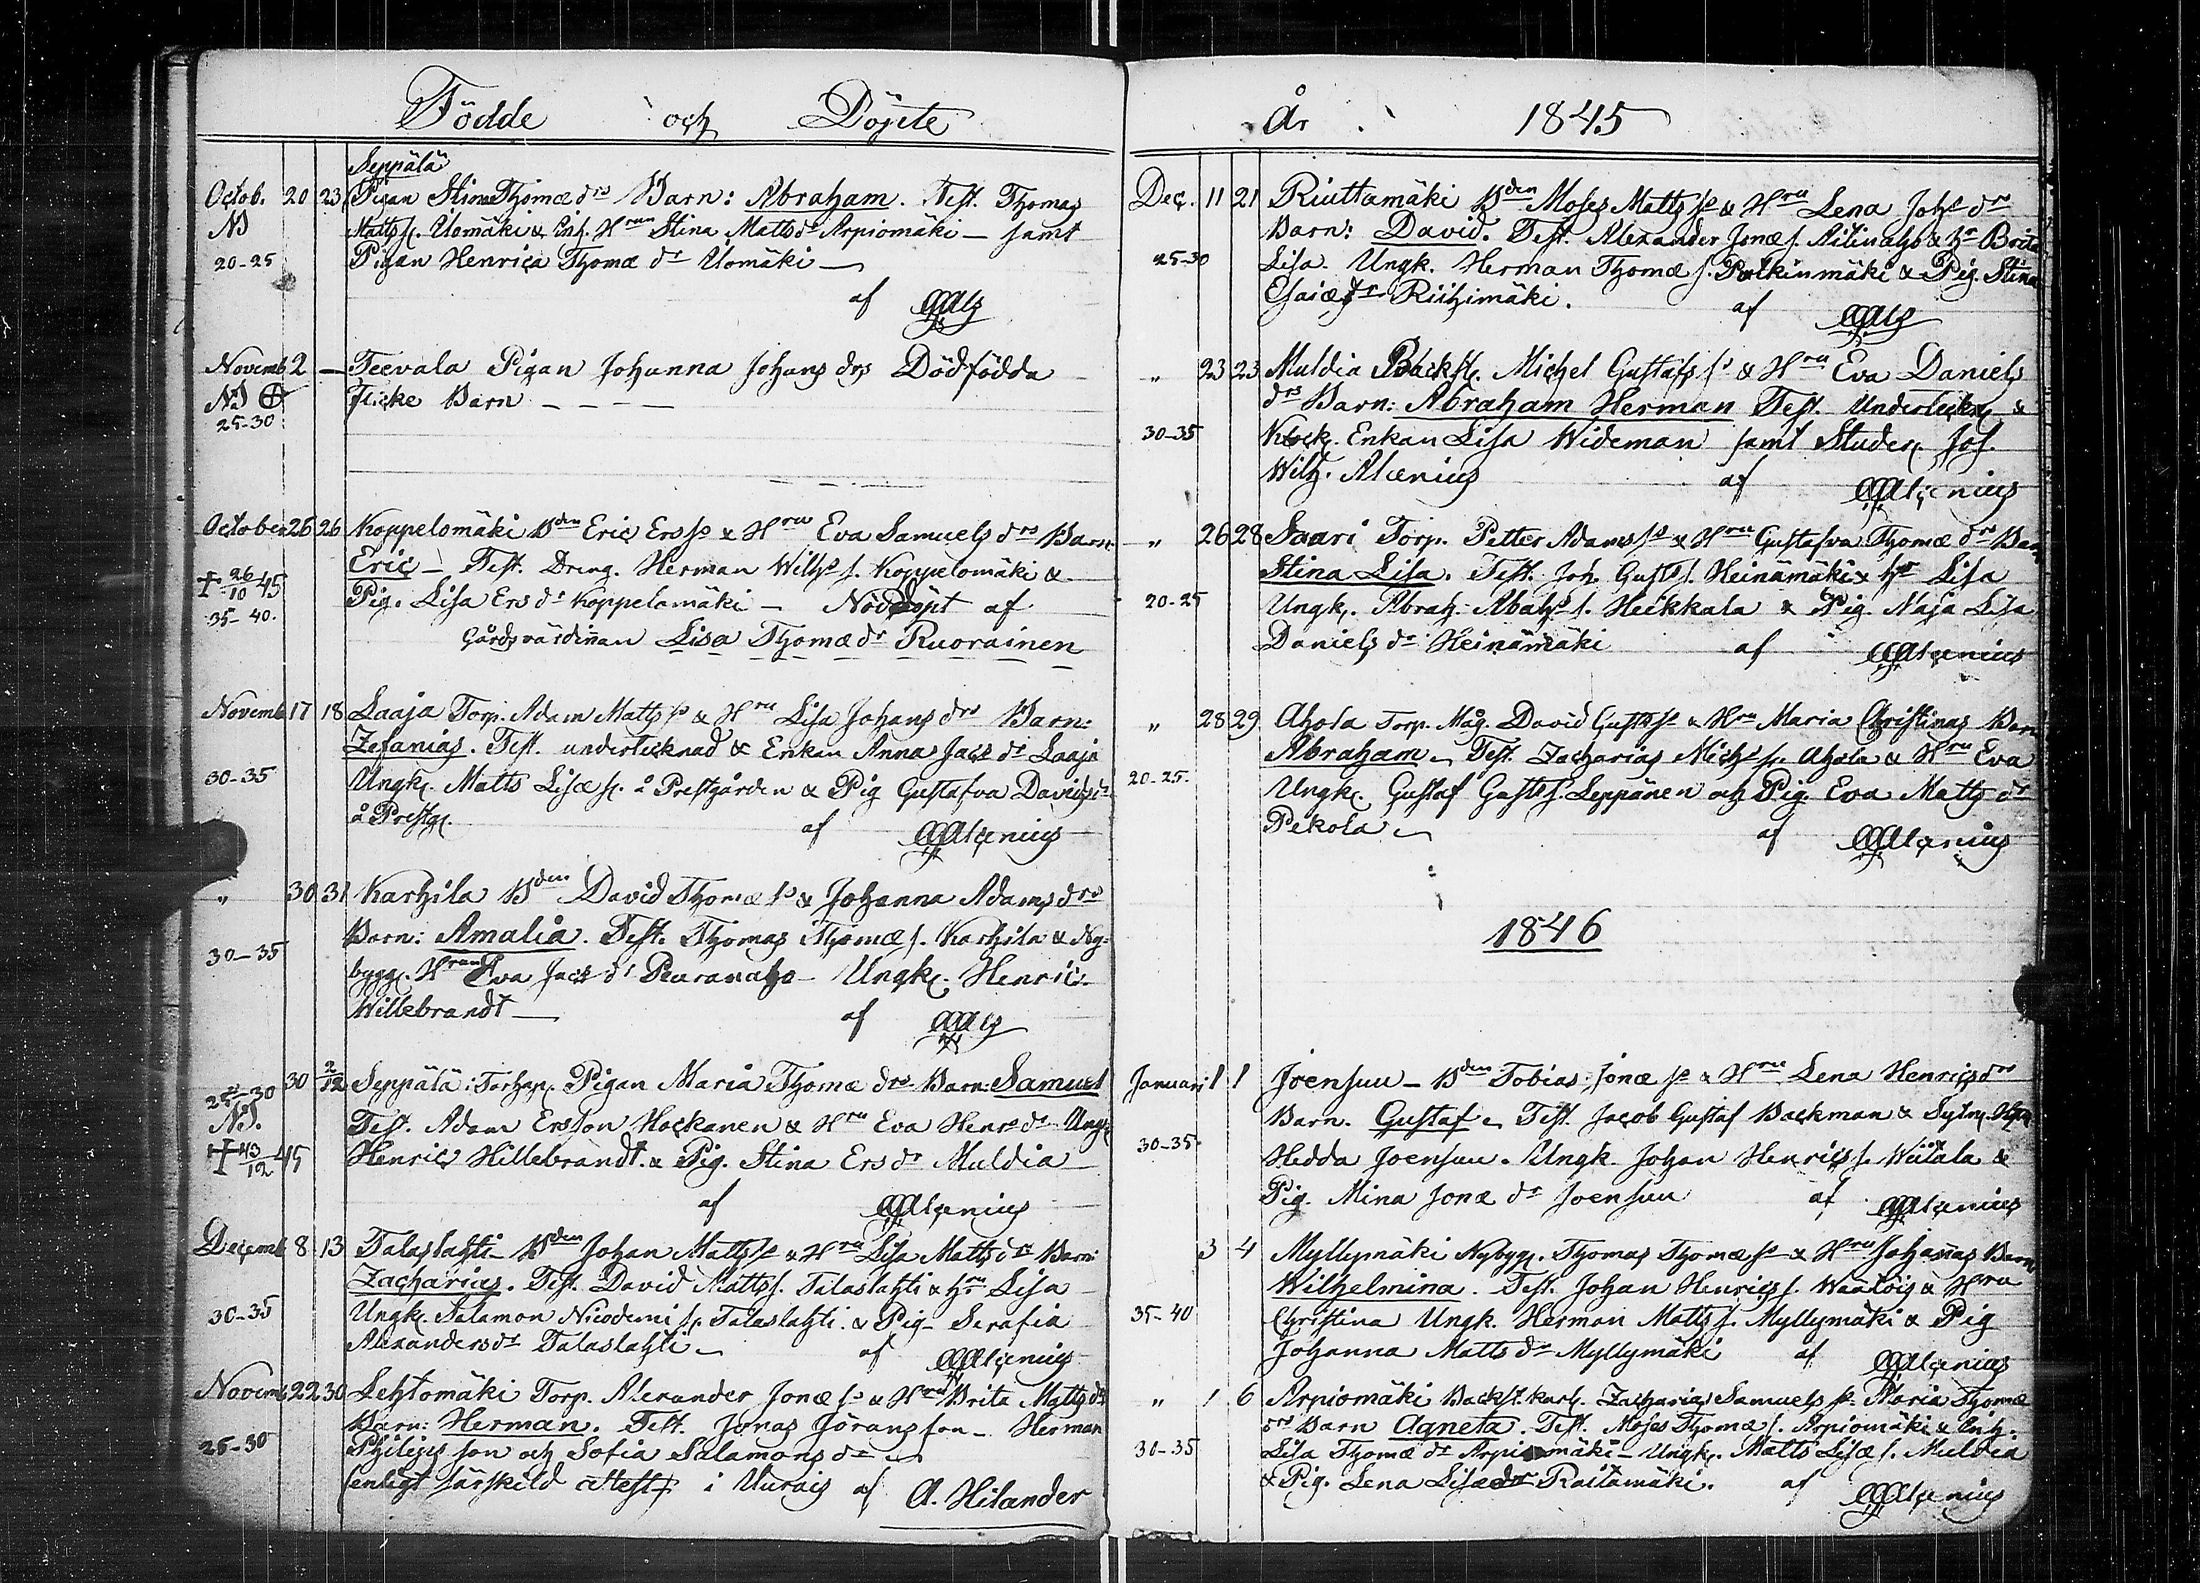 Födde och Döpte
Seppälä
Octob. 20 23 Pigan Stina Thomæ drs Barn: Abraham. Test. Thomas
NB Matts s. Ulomäki & Enk. Hrun Stina Matts dr Arpiomäki — samt
20-25 Pigan Henrica Thomæ dr Ulomäki —
af
Novemb 2 — Teevala Pigan Johanna Johans drs Dödfödda
flicke Barn — — — —
25-30
October 26 26 Koppelomäki Bden Eric Ers so & Hru Eva Samuels drs Barn
† 26/10 45 Eric — Test. Dreng. Herman Wilhs s. Koppelomäki &
35-40. Pig. Lisa Ers dr Koppelamäki — Nöddöpt af
Gårdsvärdinnan Lisa Thomæ dr Ruorainen
Novemb 17 18 Laaja Torp. Adam Matts so & Hru Lisa Johans drs Barn:
Zefanias. Test. undertecknad & Enkan Anna Jacs dr Laaja
30-35 Ungk. Matts Lisæ s. å Prestgården & Pig Gustafva Davids dr
å Prestg. af Alcenius
" 30 31 Karhila Bden David Thomæ so & Johanna Adams drs
Barn: Amalia. Test. Thomas Thomæ s. Karhila & Ny-
30-35 bygg. Hrun Eva Jacs dr Peuranaho — Ungk. Henric
Willebrandt — af
30 2/12 Seppälä: Torhp. Pigan Maria Thomæ drs Barn: Samuel
25-30
NB. Test. Adam Ersson Hackanen & Hru Eva Henrs dr Ungk
† 13/12 45 Henric Hillebrandt. & Pig. Stina Ers dr Muldia
af Alcenius
Decemb 8 13 Talaslahti Bden Johan Matts so & Hru Lisa Matts drs Barn:
Zacharias. Test. David Matts s. Talaslahti & hru Lisa
30-35 Ungk. Salamon Nicodemi s. Talaslahti. & Pig. Serafia
Alexanders dr Talaslahti — af Alcenius
Novemb 22 30 Lehtomäki Torp. Alexander Jonæ so & Hru Brita Matts drs
Barn: Herman. Test. Jonas Göransson — Herman
25-30 Philips son och Sofia Salamons dr —
(enligt särskild attest) i Uurais af A. Hilander
År 1845
Dec. 11 21 Riuttamäki Bden Moses Matts so & Hru Lena Johs drs
Barn: David. Test. Alexander Jonæ s. Ailinaho & hr Brita
25-30 Lisa. Ungk. Herman Thomæ s. Pölkinmäki & Pig. Stina
Esaiæ dr Riihimäki. af
" 23 23 Muldia Backst. Michel Gustafs so & Hru Eva Daniels
drs Barn: Abraham Herman Test. Underteckn &
30-35 Klock. Enkan Lisa Wideman samt Studer. Joh.
Wilh. Alcenius af Alcenius
" 26 28 Saari Torp. Petter Adams so & Hru Gustafva Thomæ drs Barn
Stina Lisa. Test. Joh. Gusts s. Heinämäki & hr Lisa
20-25 Ungk. Abrah. Abrahs s. Heikkala & Pig. Maja Lisa
Daniels dr Heinämäki af Alcenius
" 28 29 Ahola Torp. Måg. David Gusts so & Hru Maria Christinas Barn
Abraham — Test. Zacharias Michs s. Ahola & Hru Eva
20-25. Ungk. Gustaf Gusts s. Leppänen och Pig. Eva Matts dr
Pekola — af Alcenius
1846
Januari 1 1 Joensuu — Bden Tobias Jonæ so & Hru Lena Henrics drs
Barn. Gustaf — Test. Jacob Gustaf Backman & Sytn. Hru
30-35 Hedda Joensuu. Ungk. Johan Henrics s. Wiitala &
Pig. Mina Jonæ dr Joensuu af Alcenius
3 4 Myllymäki Nybygg. Thomas Thomæ so & Hru Johannas Barn
Wilhelmina. Test. Johan Henrics s. & Hru
35-40 Christina Ungk. Herman Matts s. Myllymäki & Pig
Johanna Matts dr Myllymäki af Alcenius
" 1 6 Arpiomäki Backst. karl. Zacharias Samuels so Maria Thomæ
drs Barn Agneta. Test. Moses Thomæ s. Arpiomäki & Enk.
30-35 Lisa Thomæ dr Arpiomäki — Ungk. Matts Lisæ s. Muldia
& Pig. Lena Lisæ dr Raitamäki. af Alcenius